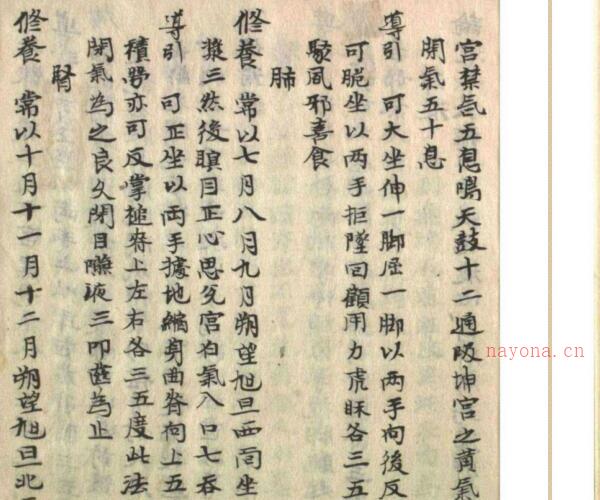 宫禁氣五息鳴天鼓十二通吸坤宫之黄氣
閉氣五十息
導引 可大坐伸一脚屈一脚以两手向後反
可跪坐以两手拒墜回顧用力虎視各三五
聚風邪喜食
肺
修養 常以七月八月九月朔望旭旦西面坐
漿三然後瞑目正心思兑宫白氣入口七吞
導引 可正坐以两手據地縮身曲脊向上五
積勞亦可反掌搥脊上左右各三五度此法
閉氣為之良久閉目嚥液三叩齒為止
腎
修養 常以十月十一月十二月朔望旭旦北
nayona.cn